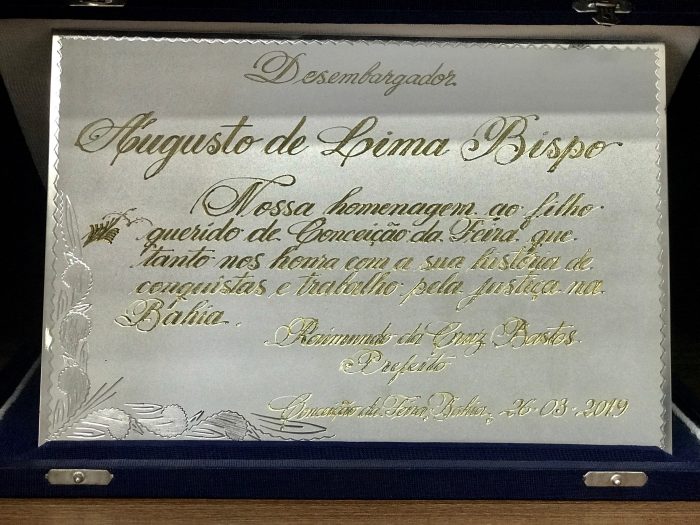 Desembargador
Augusto de Lima Bispo
Nossa homenagem ao filho
querido de Conceição da Feira, que
tanto nos honra com a sua história de
conquistas e trabalho pela justiça na
Bahia.
Raimundo da Cruz Bastos
Prefeito
Conceição da Feira, Bahia, 26-03-2019